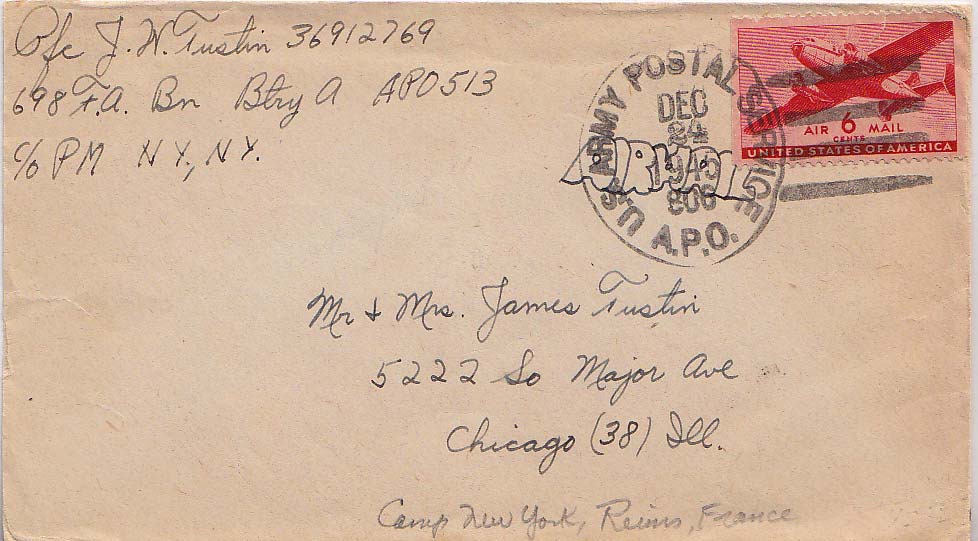 Pfc J. W. Tustin 36912769
698 F.A. Bn Btry A APO 513
c/o PM NY, NY.
U.S. ARMY POSTAL SERVICE
DEC
24
1945
808
A.P.O.
AIRMAIL
AIR 6 MAIL
CENTS
UNITED STATES OF AMERICA
Mr & Mrs. James Tustin
5222 So Major Ave
Chicago (38) Ill.
Camp New York, Reims, France